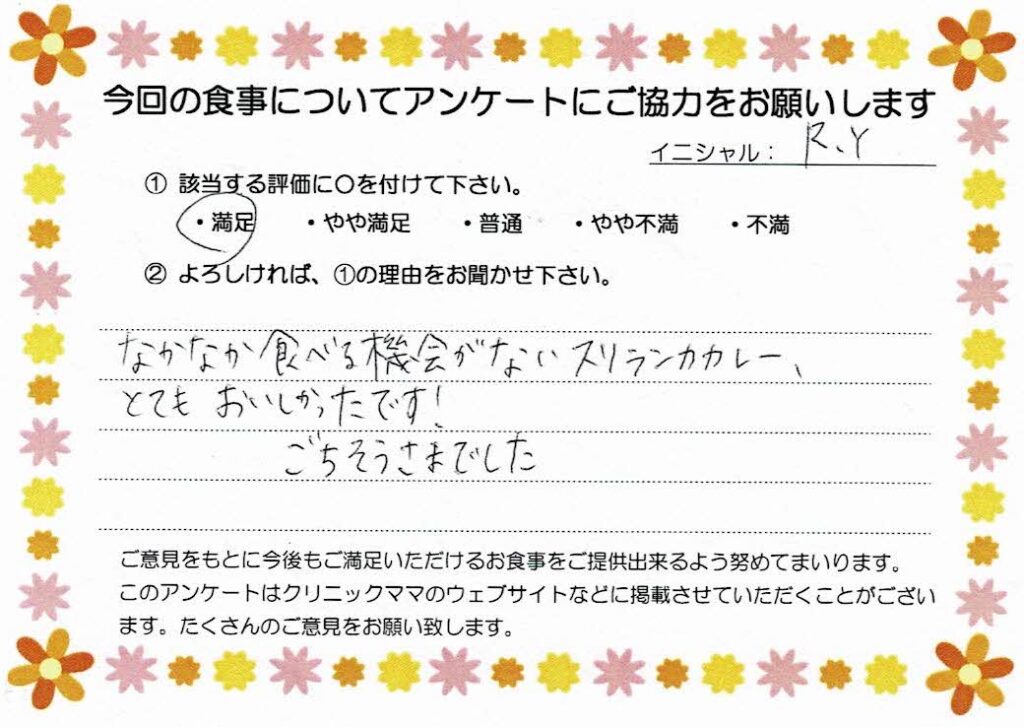 今回の食事についてアンケートにご協力をお願いします
イニシャル： R.Y
① 該当する評価に○を付けて下さい。
・満足 ・やや満足 ・普通 ・やや不満 ・不満
② よろしければ、①の理由をお聞かせ下さい。
なかなか食べる機会がないスリランカカレー、
とてもおいしかったです！
ごちそうさまでした
ご意見をもとに今後もご満足いただけるお食事をご提供出来るよう努めてまいります。
このアンケートはクリニックママのウェブサイトなどに掲載させていただくことがござい
ます。たくさんのご意見をお願い致します。